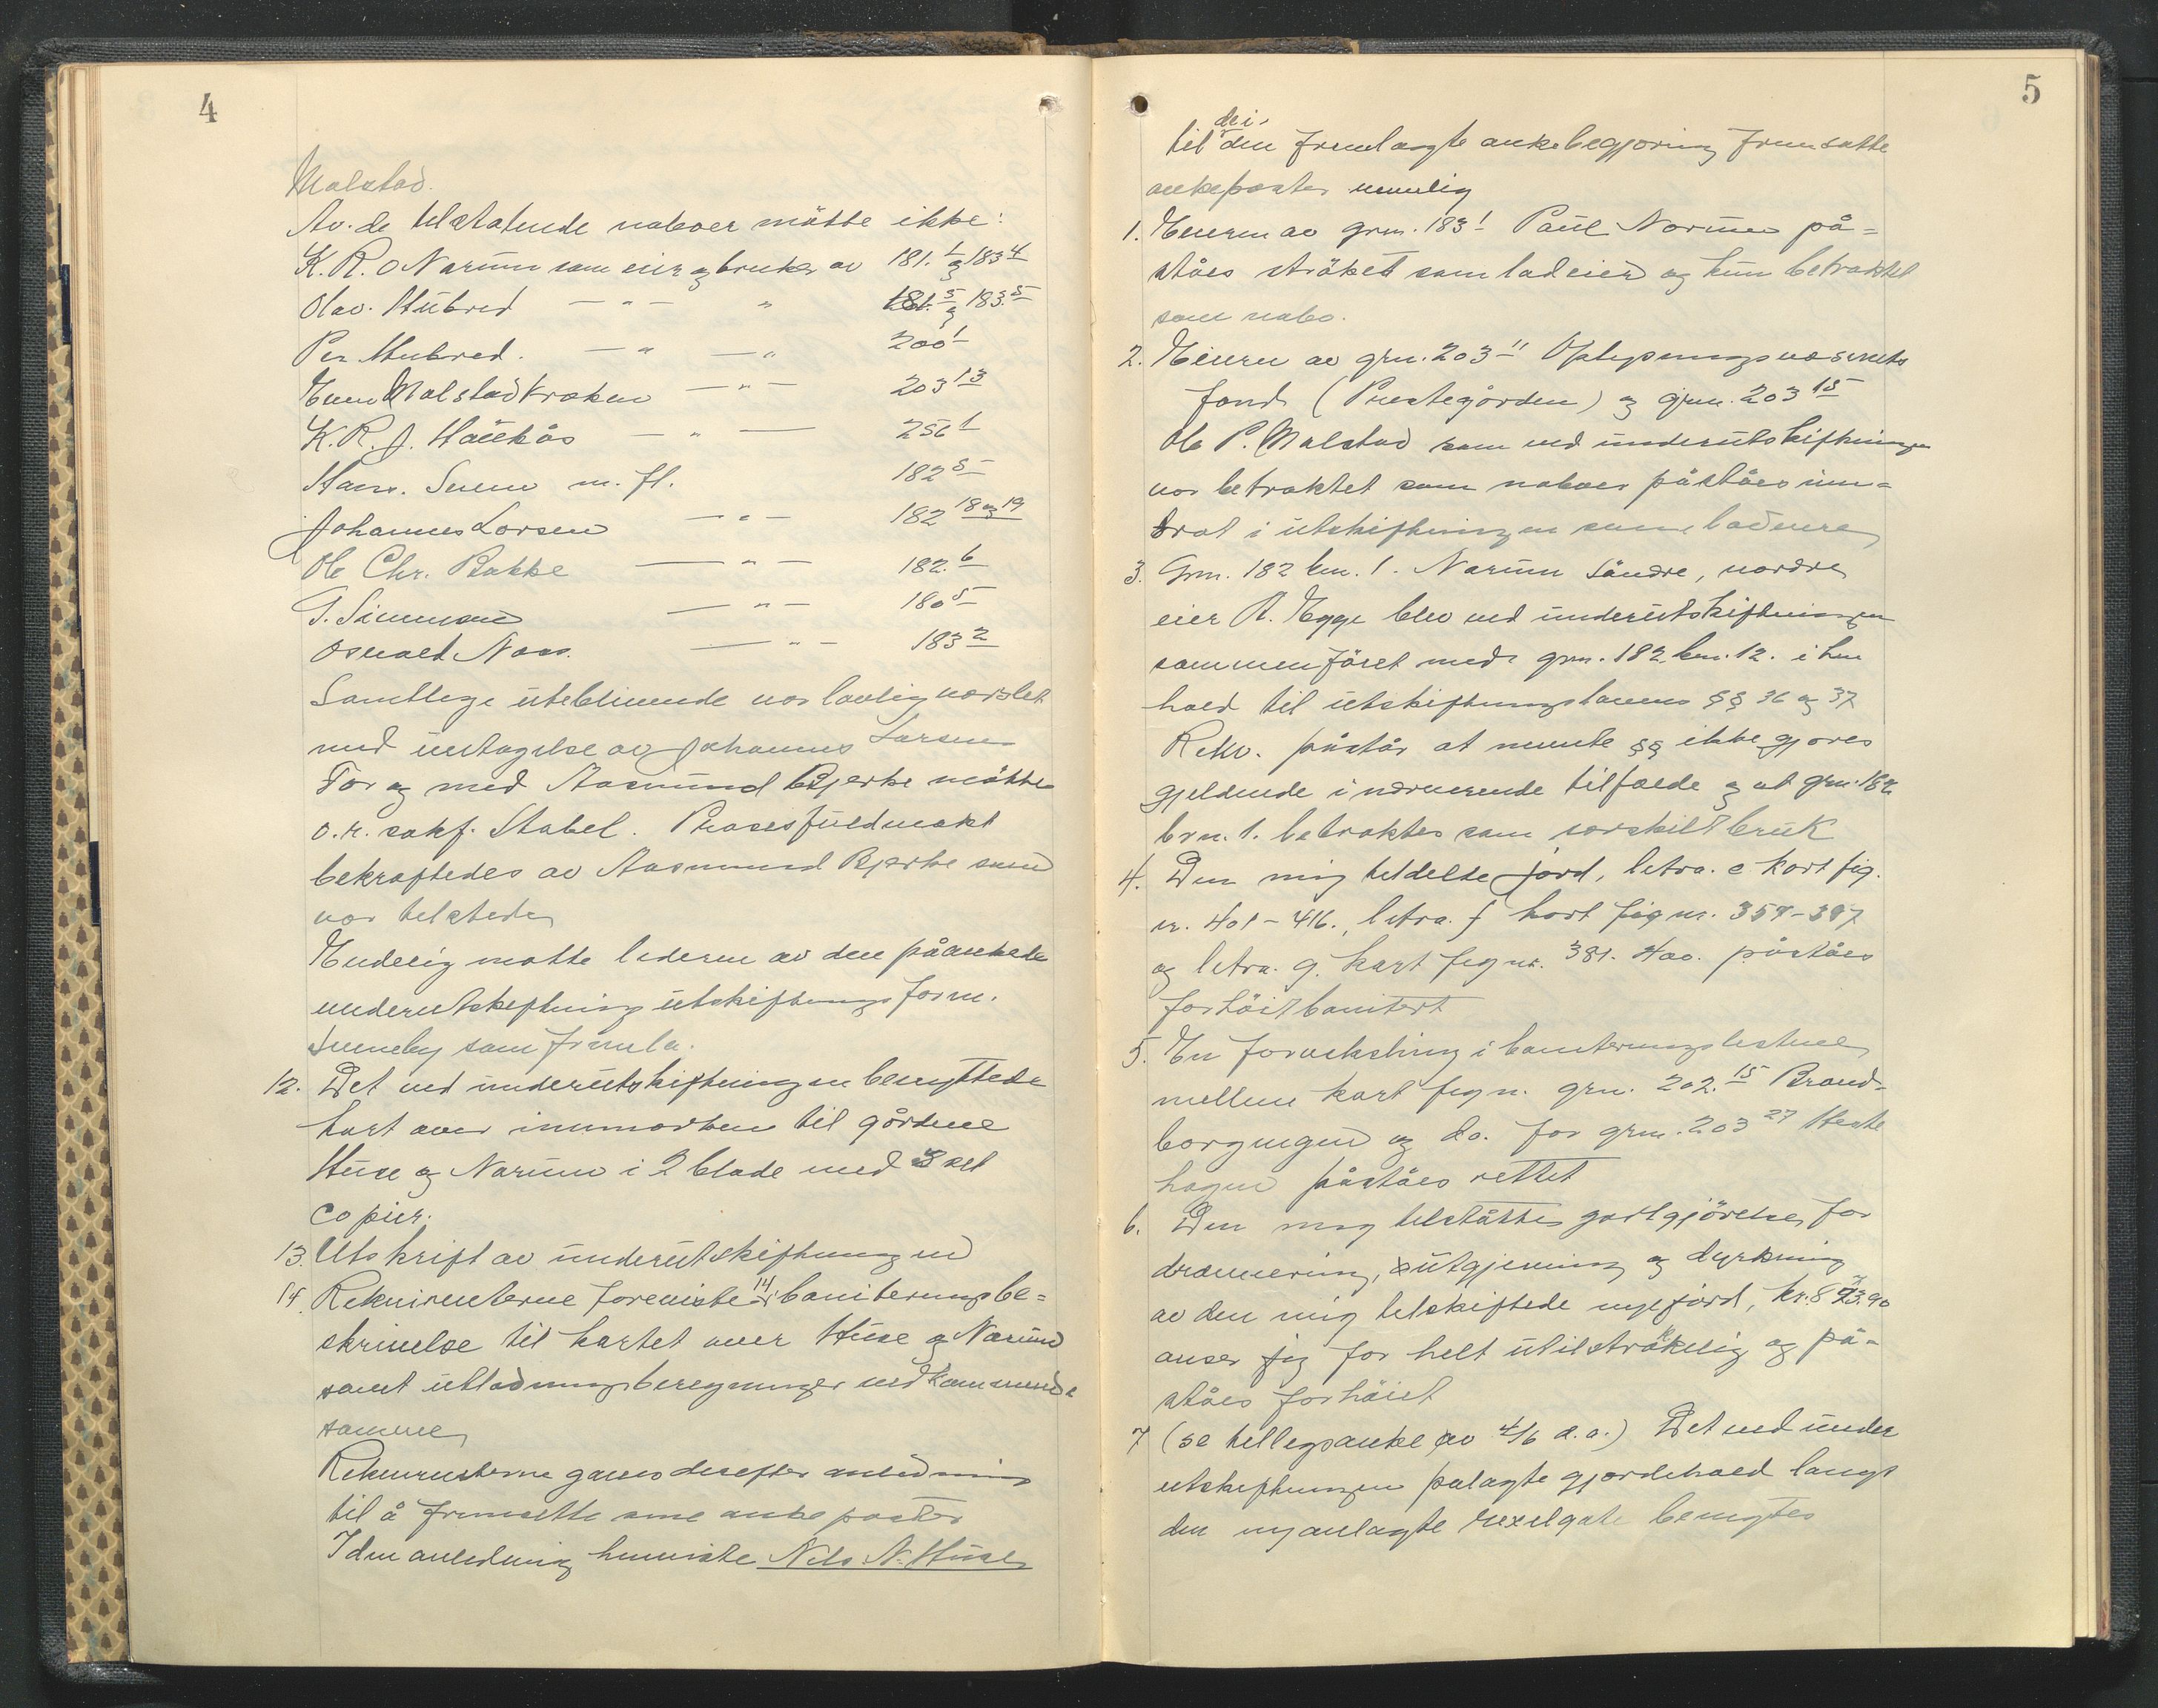 4
Malstad.
Av. de tilstøtende naboer mötte ikke:
K. R. O Narum som eier og bruker av 181.1 og 183 4
Olav. Hubred — " — " 181. 5 og 183. 5
Per Hubred. — " — " 200 1
Even Malstadkroken — " — 203 13
K. R. J. Haukås — " — 256 1
Hans. Sveen m. fl. 182 5
Johannes Larsen — " — 182 18 og 19
Ole Chr. Bakke — " — 182. 6
T. Simensen — " — 180 5
Osvald Naas. — " — 183 2
Samtlige uteblivende var lovlig varslet
med undtagelse av Johannes Larsen
For og med Aasmund Bjerke mötte
o.r. sakf. Stabel. Prosesfuldmakt
bekræftedes av Aasmund Bjerke som
var tilstede
Endelig møtte lederen av den påankede
underutskiftning utskiftningsform.
Sunneby som fremla.
12. Det ved underutskiftningen benyttede
kart over innmarken til gårdene
Huse og Narum i 2 blade med 3 set
copier.
13. Utskrift av underutskiftningen
14. Rekvirenterne foreviste 14 boniteringsbe=
skrivelse til kartet over Huse og Narum
samt utlodningsberegninger vedkommende
samme
Rekvirenterne gaves derefter anledning
til å fremsette sine ankeposter
I den anledning henviste Nils N. Huse
5
de i
til den fremlagte ankebegjæring fremsatte
ankeposter nemlig
1. Eieren av grn. 183 1 Paul Narum på=
ståes strøket som lodeier og kun betraktet
som nabo.
2. Eieren av grn. 203 11 Oplysningsvæsenets
fond (Prestegården) og grn. 203 15
Ole P. Malstad som ved underutskiftningen
var betraktet som naboer påståes inn=
drat i utskiftningen som lodeiere
3. Grn. 182 brn. 1. Narum söndre, nordre
eier A. Egge blev ved underutskiftningen
sammenföiet med grn. 182 brn. 12. i hen
hold til utskiftningslovens §§ 36 og 37
Rekv. påstår at nevnte §§ ikke gjøres
gjeldende i nærværende tilfælde og at grn. 182
brn. 1. betraktes som særskilt bruk
4. Den mig tildelte jord, litra. e kart fig.
nr. 401 - 416., litra. f kart fig nr. 359 - 397
og litra. g. kart fig nr. 381. 400. påståes
for höit bonitert
5. En forveksling i boniteringslistene
mellem kart fig n. grn. 202. 15 Brand-
borgengen og do. for grn. 203 27 Heste
hagen påståes rettet
6. Den mig tilståtte godtgjörelse for
drænering, utgjerning og dyrkning
av den mig tilskiftede nyejord, kr. 873.90
anser jeg for helt utilstrækkelig og på-
ståes forhöiet
7 (se tillegsanke av 4/6 d. a.) Det ved under
utskiftningen palagte gjærdehold langs
den nyanlagte rexelgate benegtes